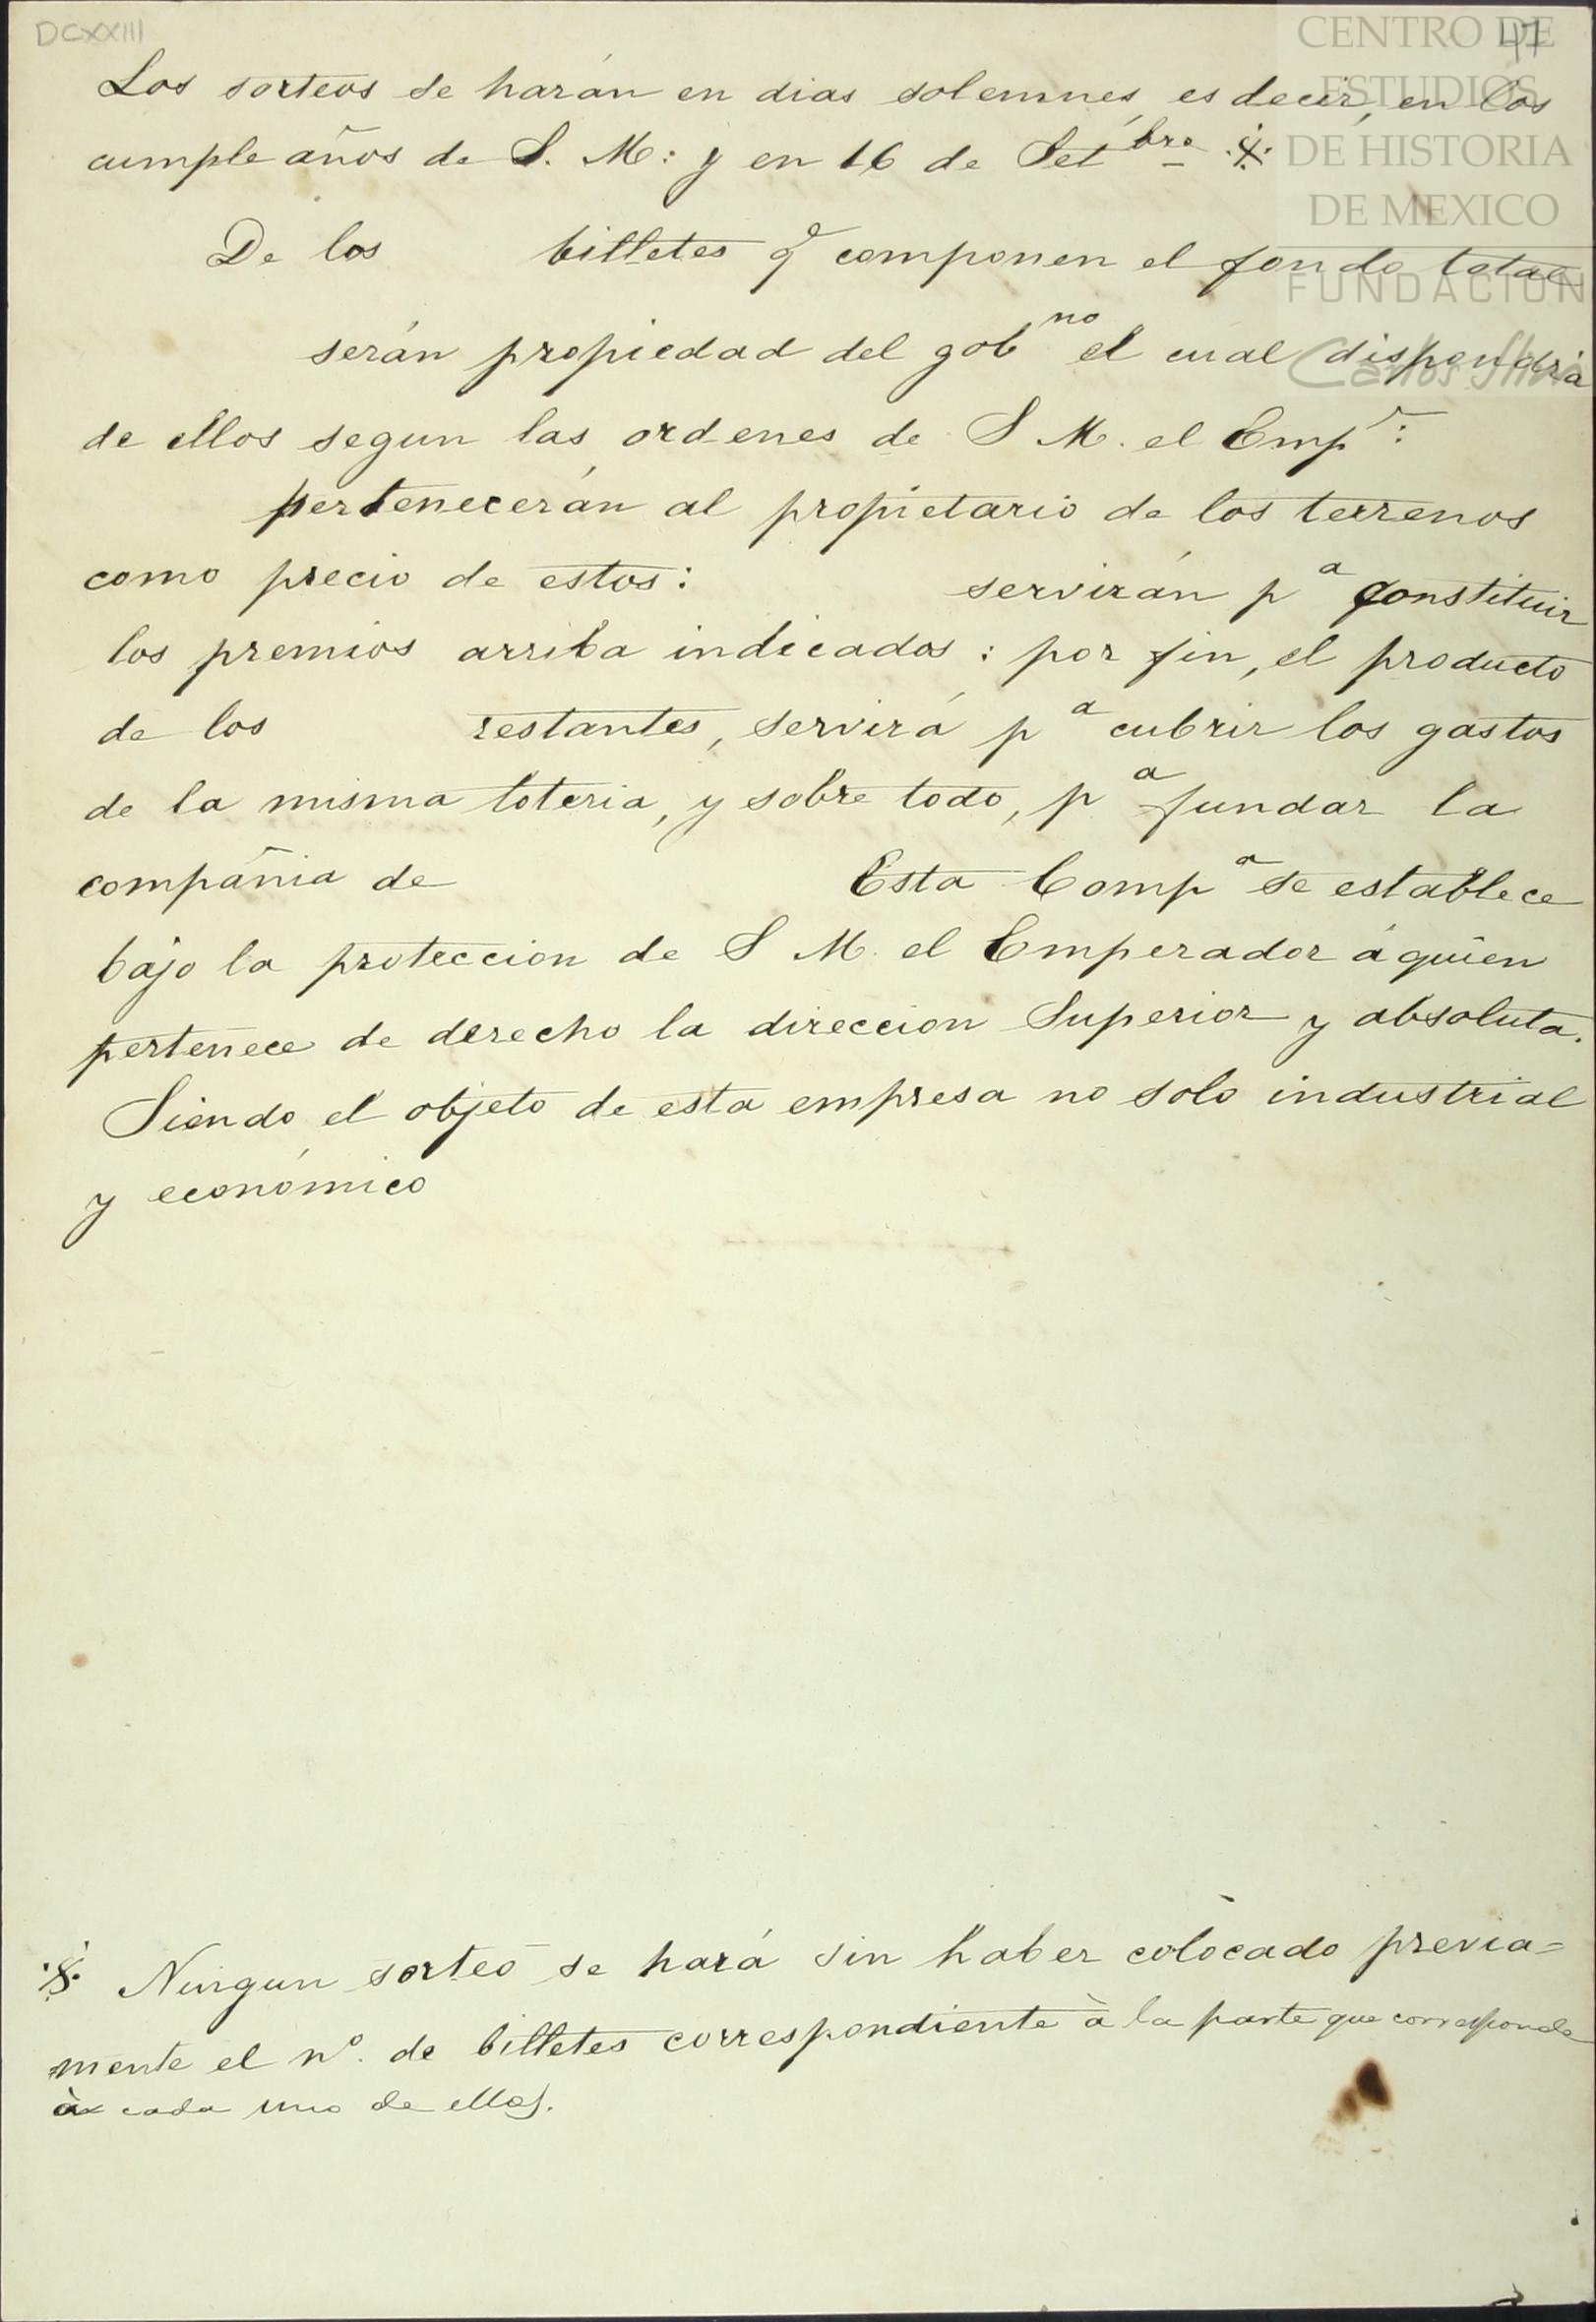 DCXXIII
47
CENTRO DE
ESTUDIOS
DE HISTORIA
DE MEXICO
FUNDACION
Carlos Slim
Los sorteos se harán en dias solemnes, es decir, en los
cumple años de S. M: y en 16 de Setbre ※
De los billetes q̃ componen el fondo total
serán propiedad del gobno el cual dispondrá
de ellos segun las ordenes de S M. el Empr:
pertenecerán al propietario de los terrenos
como precio de estos: servirán pa constituir
los premios arriba indicados: por fin, el producto
de los restantes, servirá pa cubrir los gastos
de la misma loteria, y sobre todo, pa fundar la
compañia de Esta Compa se establece
bajo la proteccion de S M. el Emperador á quien
pertenece de derecho la direccion Superior y absoluta.
Siendo el objeto de esta empresa no solo industrial
y económico
※ Ningun sorteo se hará sin haber colocado previa=
mente el nº. de billetes correspondiente à la parte que corresponde
à cada uno de ellos.